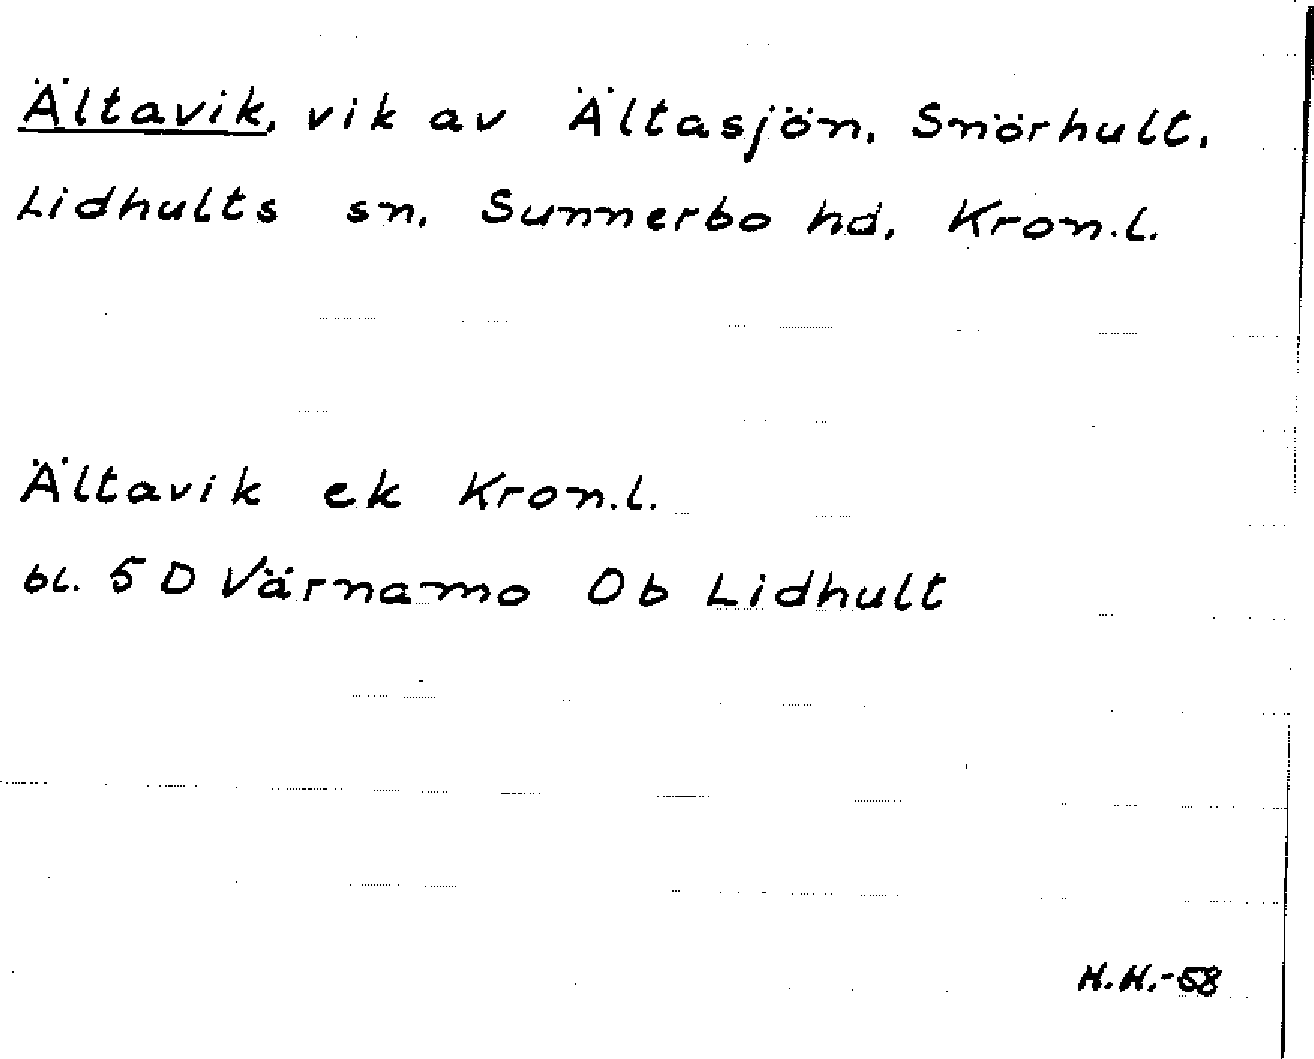 Ältavik, vik av Ältasjön, Snörhult,
Lidhults sn, Sunnerbo hd, Kron.l.
Ältavik ek Kron.l.
bl. 5 D Värnamo 0b Lidhult
H.H.-58